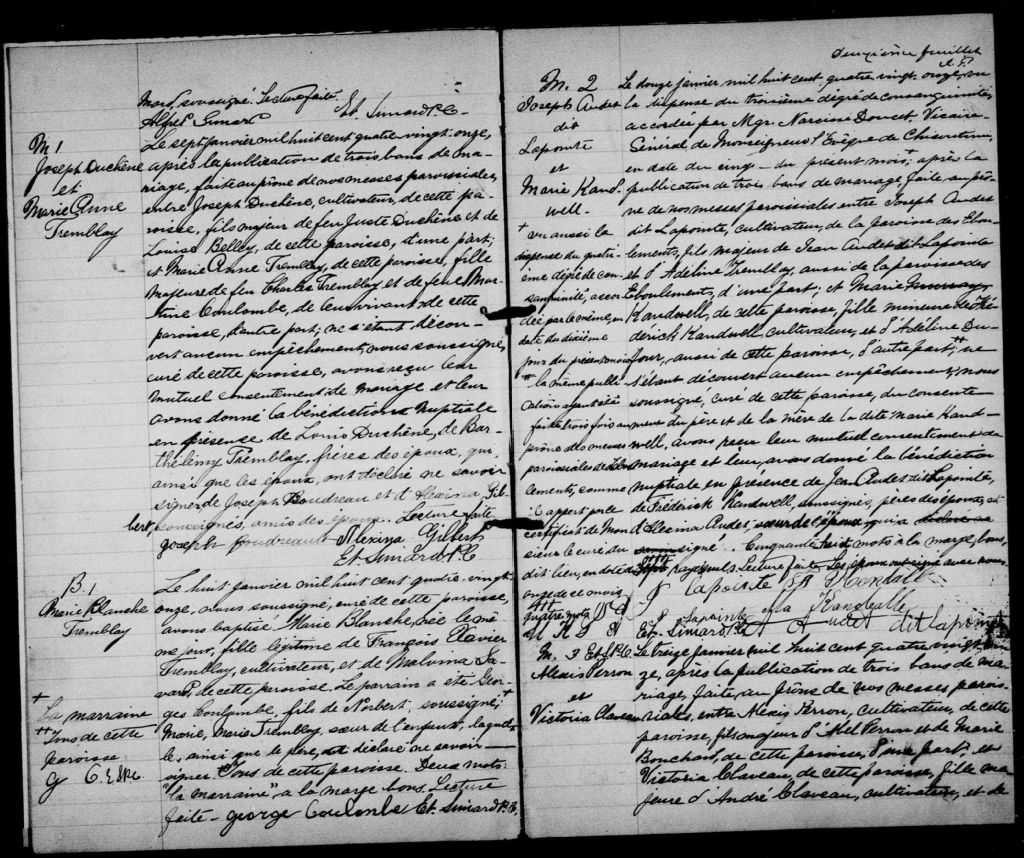 Mard, soussigné. Lecture faite.
Alfred Simard Et. Simard Ptre
M 1
Joseph Duchêne
et
Marie Anne
Tremblay
Le sept janvier mil huit cent quatre-vingt-onze,
après la publication de trois bans de ma-
riage, faite au prône de nos messes paroissiales,
entre Joseph Duchêne, cultivateur, de cette pa-
roisse, fils majeur de feu Juste Duchêne et de
Louise Belley, de cette paroisse, d'une part;
et Marie Anne Tremblay, de cette paroisse, fille
majeure de feu Charles Tremblay et de feue Mar-
tine Coulombe, de leur vivant de cette
paroisse, d'autre part; ne s'étant décou-
vert aucun empêchement, nous soussigné,
curé de cette paroisse, avons reçu leur
mutuel consentement de mariage et leur
avons donné la bénédiction nuptiale
en présence de Louis Duchêne, de Bar-
thélémy Tremblay, frères des époux, qui,
ainsi que les époux, ont déclaré ne savoir
signer, de Joseph Boudreau et d'Alexina Gil-
bert, soussignés, amis des époux. Lecture faite
Joseph Boudreault Alexina Gilbert
Et. Simard Ptre
B. 1
Marie Blanche
Tremblay
Le huit janvier mil huit cent quatre-vingt-
onze, nous soussigné, curé de cette paroisse,
avons baptisé Marie Blanche, née le mê-
me jour, fille légitime de François Xavier
Tremblay, cultivateur, et de Malvina Sa-
vard, de cette paroisse. Le parrain a été Geor-
ges Coulombe, fils de Norbert, soussigné; +
Marie, Marie Tremblay, sœur de l'enfant, laquel-
le, ainsi que le père, a déclaré ne savoir
signer. ++ Tous de cette paroisse. Deux mots
"la marraine" à la marge bons. Lecture
faite - George Coulombe Et. Simard Ptre
+
La marraine
++ Tous de cette
paroisse
G C. E S Ptre
deuxième feuillet
M. 2
Joseph Audet
dit
Lapointe
et
Marie Kand-
well.
+ vu aussi la
dispense du quatri-
ème dégré de con-
sanguinité, accor-
dée par le même, en
date du dixième
jour du présent mois
++ la même publi-
cation ayant été
faite trois fois au
prône des messes
paroissiales des Ebou-
lements, comme
il appert par le
certificat de Mon-
sieur le curé du
dit lieu, en date du
onze de ce mois
Le douze janvier mil huit cent quatre-vingt-onze, vu
la dispense du troisième dégré de consanguinité
accordée par Mgr. Narcisse Doucet, Vicaire-
Général de Monseigneur l'Evêque de Chicoutimi,
en date du cinq du présent mois, + après la
publication de trois bans de mariage faite au prô-
ne de nos messes paroissiales entre Joseph Audet
dit Lapointe, cultivateur, de la paroisse des Ebou-
lements, fils majeur de Jean Audet dit Lapointe
et d'Adeline Tremblay, aussi de la paroisse des
Eboulements, d'une part; et Marie
Kandwell, de cette paroisse, fille mineure de Fré-
dérick Kandwell cultivateur, et d'Adeline Du-
four, aussi de cette paroisse, d'autre part; ++ ne
s'étant découvert aucun empêchement, nous
soussigné, curé de cette paroisse, du consente-
ment du père et de la mère de la dite Marie Kand-
well, avons reçu leur mutuel consentement de
mariage et leur avons donné la bénédiction
nuptiale en présence de Jean Audet dit Lapointe,
de Fédérick Kandwell, soussignés, pères des époux, et
d'Alexina Audet, sœur de l'époux, qui a
signé. Cinquante huit mots à la marge, bons,
rayés nuls. Lecture faite. Les époux ont signé avec nous
J Lapointe Kandall
Lapointe Kandalle
Et. Simard Ptre A Audet dit Lapointe
M. 3
Alexis Perron
et
Victoria Claveau
Le treize janvier mil huit cent quatre vingt on-
ze, après la publication de trois bans de ma-
riage, faite, au prône de nos messes, parois-
siales, entre Alexis Perron, cultivateur, de cette
paroisse, fils majeur d'Abel Perron et de Marie
Bouchard, de cette paroisse, d'une part; et
Victoria Claveau, de cette paroisse, fille ma-
jeure d'André Claveau, cultivateur, et de